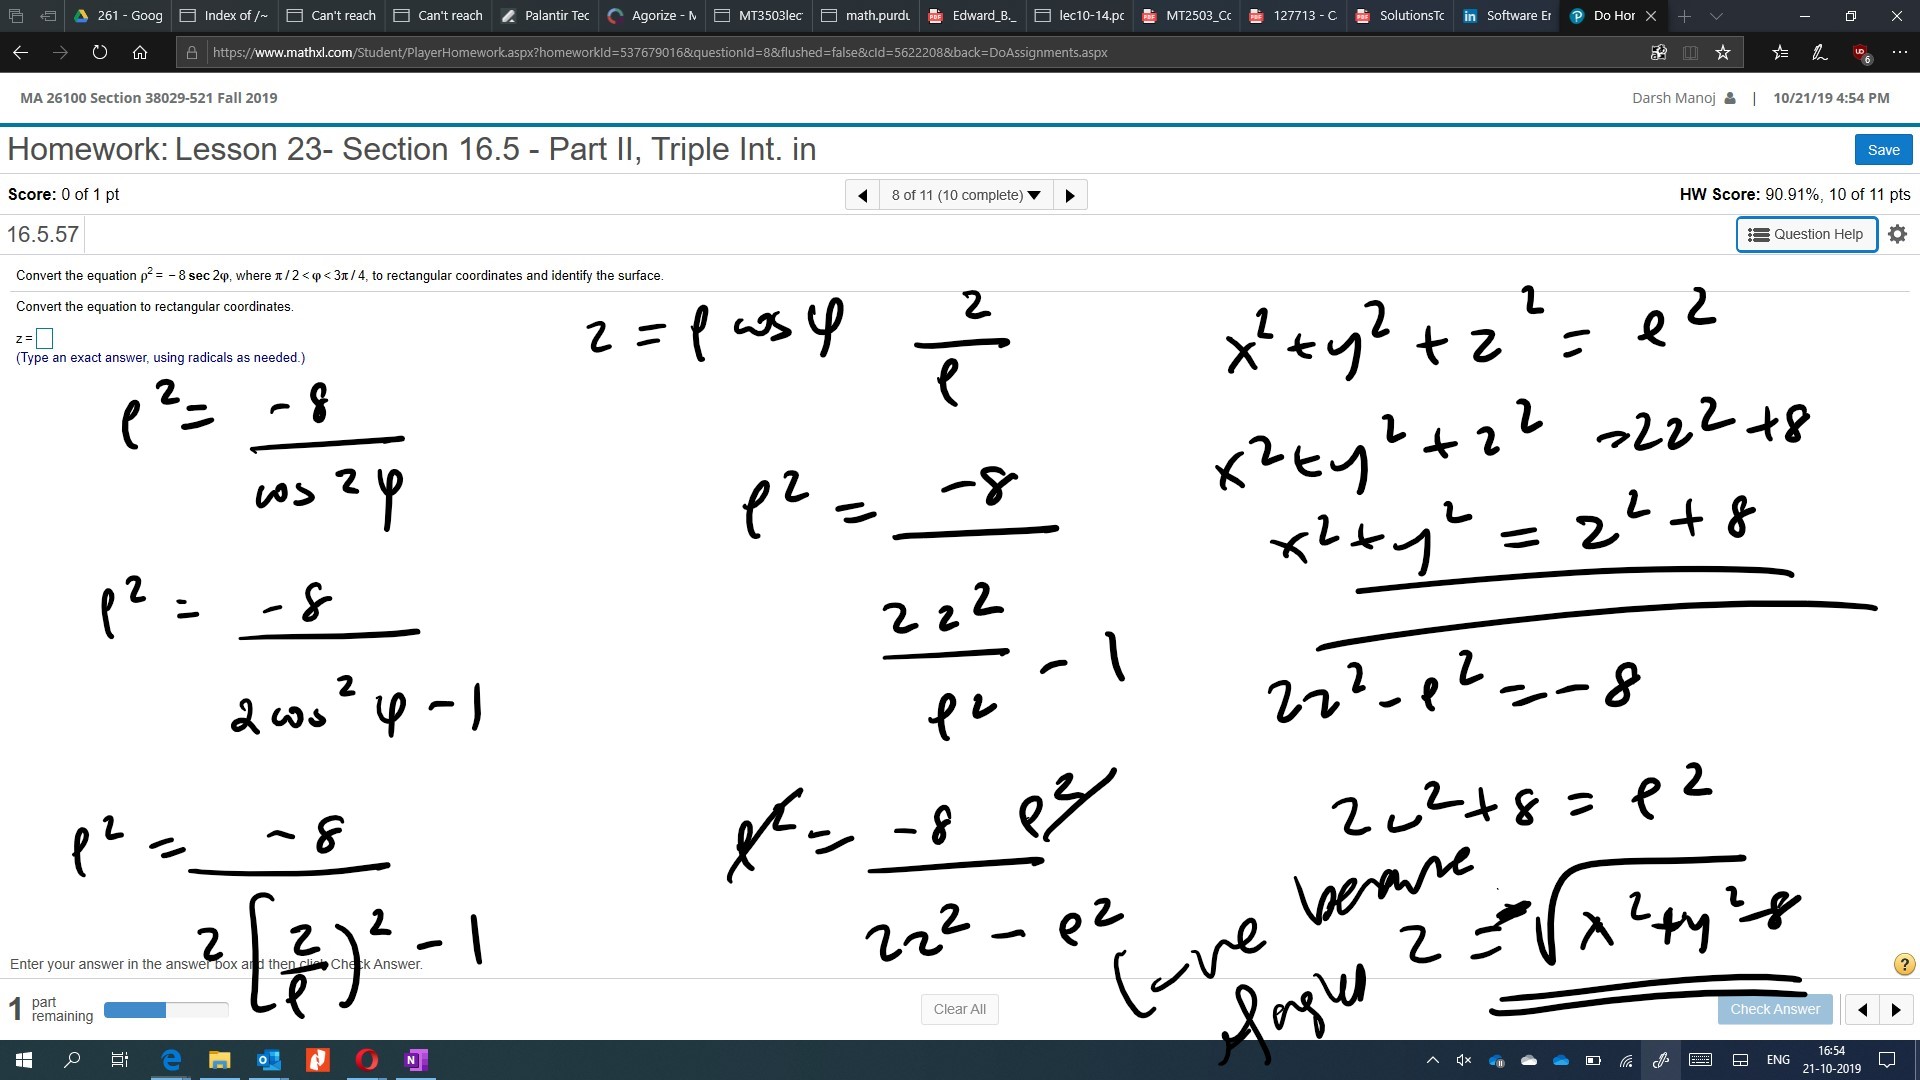 261 - Goog
Index of /~
Can't reach
Can't reach
Palantir Tec
Agorize - M
MT3503lec
math.purdu
Edward_B._
lec10-14.pc
MT2503_Cc
127713 - C
SolutionsTc
Software Er
Do Hor
https://www.mathxl.com/Student/PlayerHomework.aspx?homeworkId=537679016&questionId=8&flushed=false&cId=5622208&back=DoAssignments.aspx
MA 26100 Section 38029-521 Fall 2019
Darsh Manoj | 10/21/19 4:54 PM
Homework: Lesson 23- Section 16.5 - Part II, Triple Int. in
Save
Score: 0 of 1 pt
8 of 11 (10 complete)
HW Score: 90.91%, 10 of 11 pts
16.5.57
Question Help
Convert the equation ρ² = − 8 sec 2φ, where π / 2 < φ < 3π / 4, to rectangular coordinates and identify the surface.
Convert the equation to rectangular coordinates.
z =
(Type an exact answer, using radicals as needed.)
ρ² = -8 / cos 2φ
ρ² = -8 / 2cos²φ - 1
ρ² = -8 / 2[z/ρ)² - 1
z = ρ cos φ
z / ρ
ρ² = -8 / 2z²/ρ² - 1
ρ² = -8 ρ² / 2z² - ρ²
x² + y² + z² = ρ²
x² + y² + z² = 2z² + 8
x² + y² = z² + 8
2z² - ρ² = -8
2z² + 8 = ρ²
z = -√x² + y² - 8
(-ve because
Enter your answer in the answer box and then click Check Answer.
1 part remaining
Clear All
Check Answer
ENG
16:54
21-10-2019